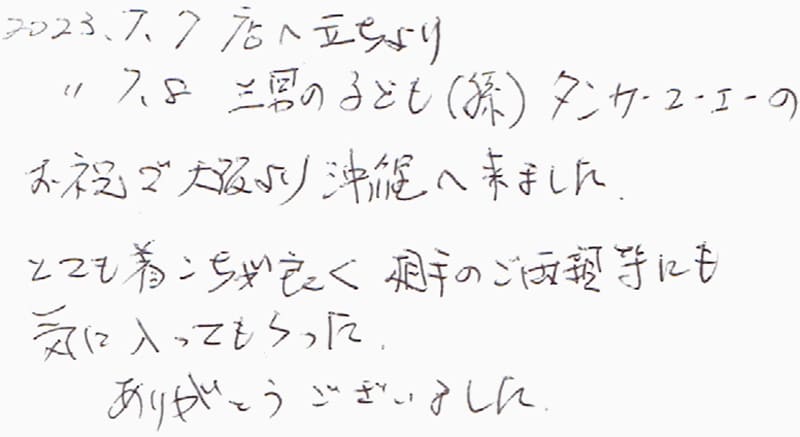 2023.7.7 店へ立ちより
〃 7.8 三男の子ども(孫)タンカーユーエーの
お祝で大阪より沖縄へ来ました.
とても着ごこちが良く 相手のご両親等にも
気に入ってもらった.
ありがとうございました.